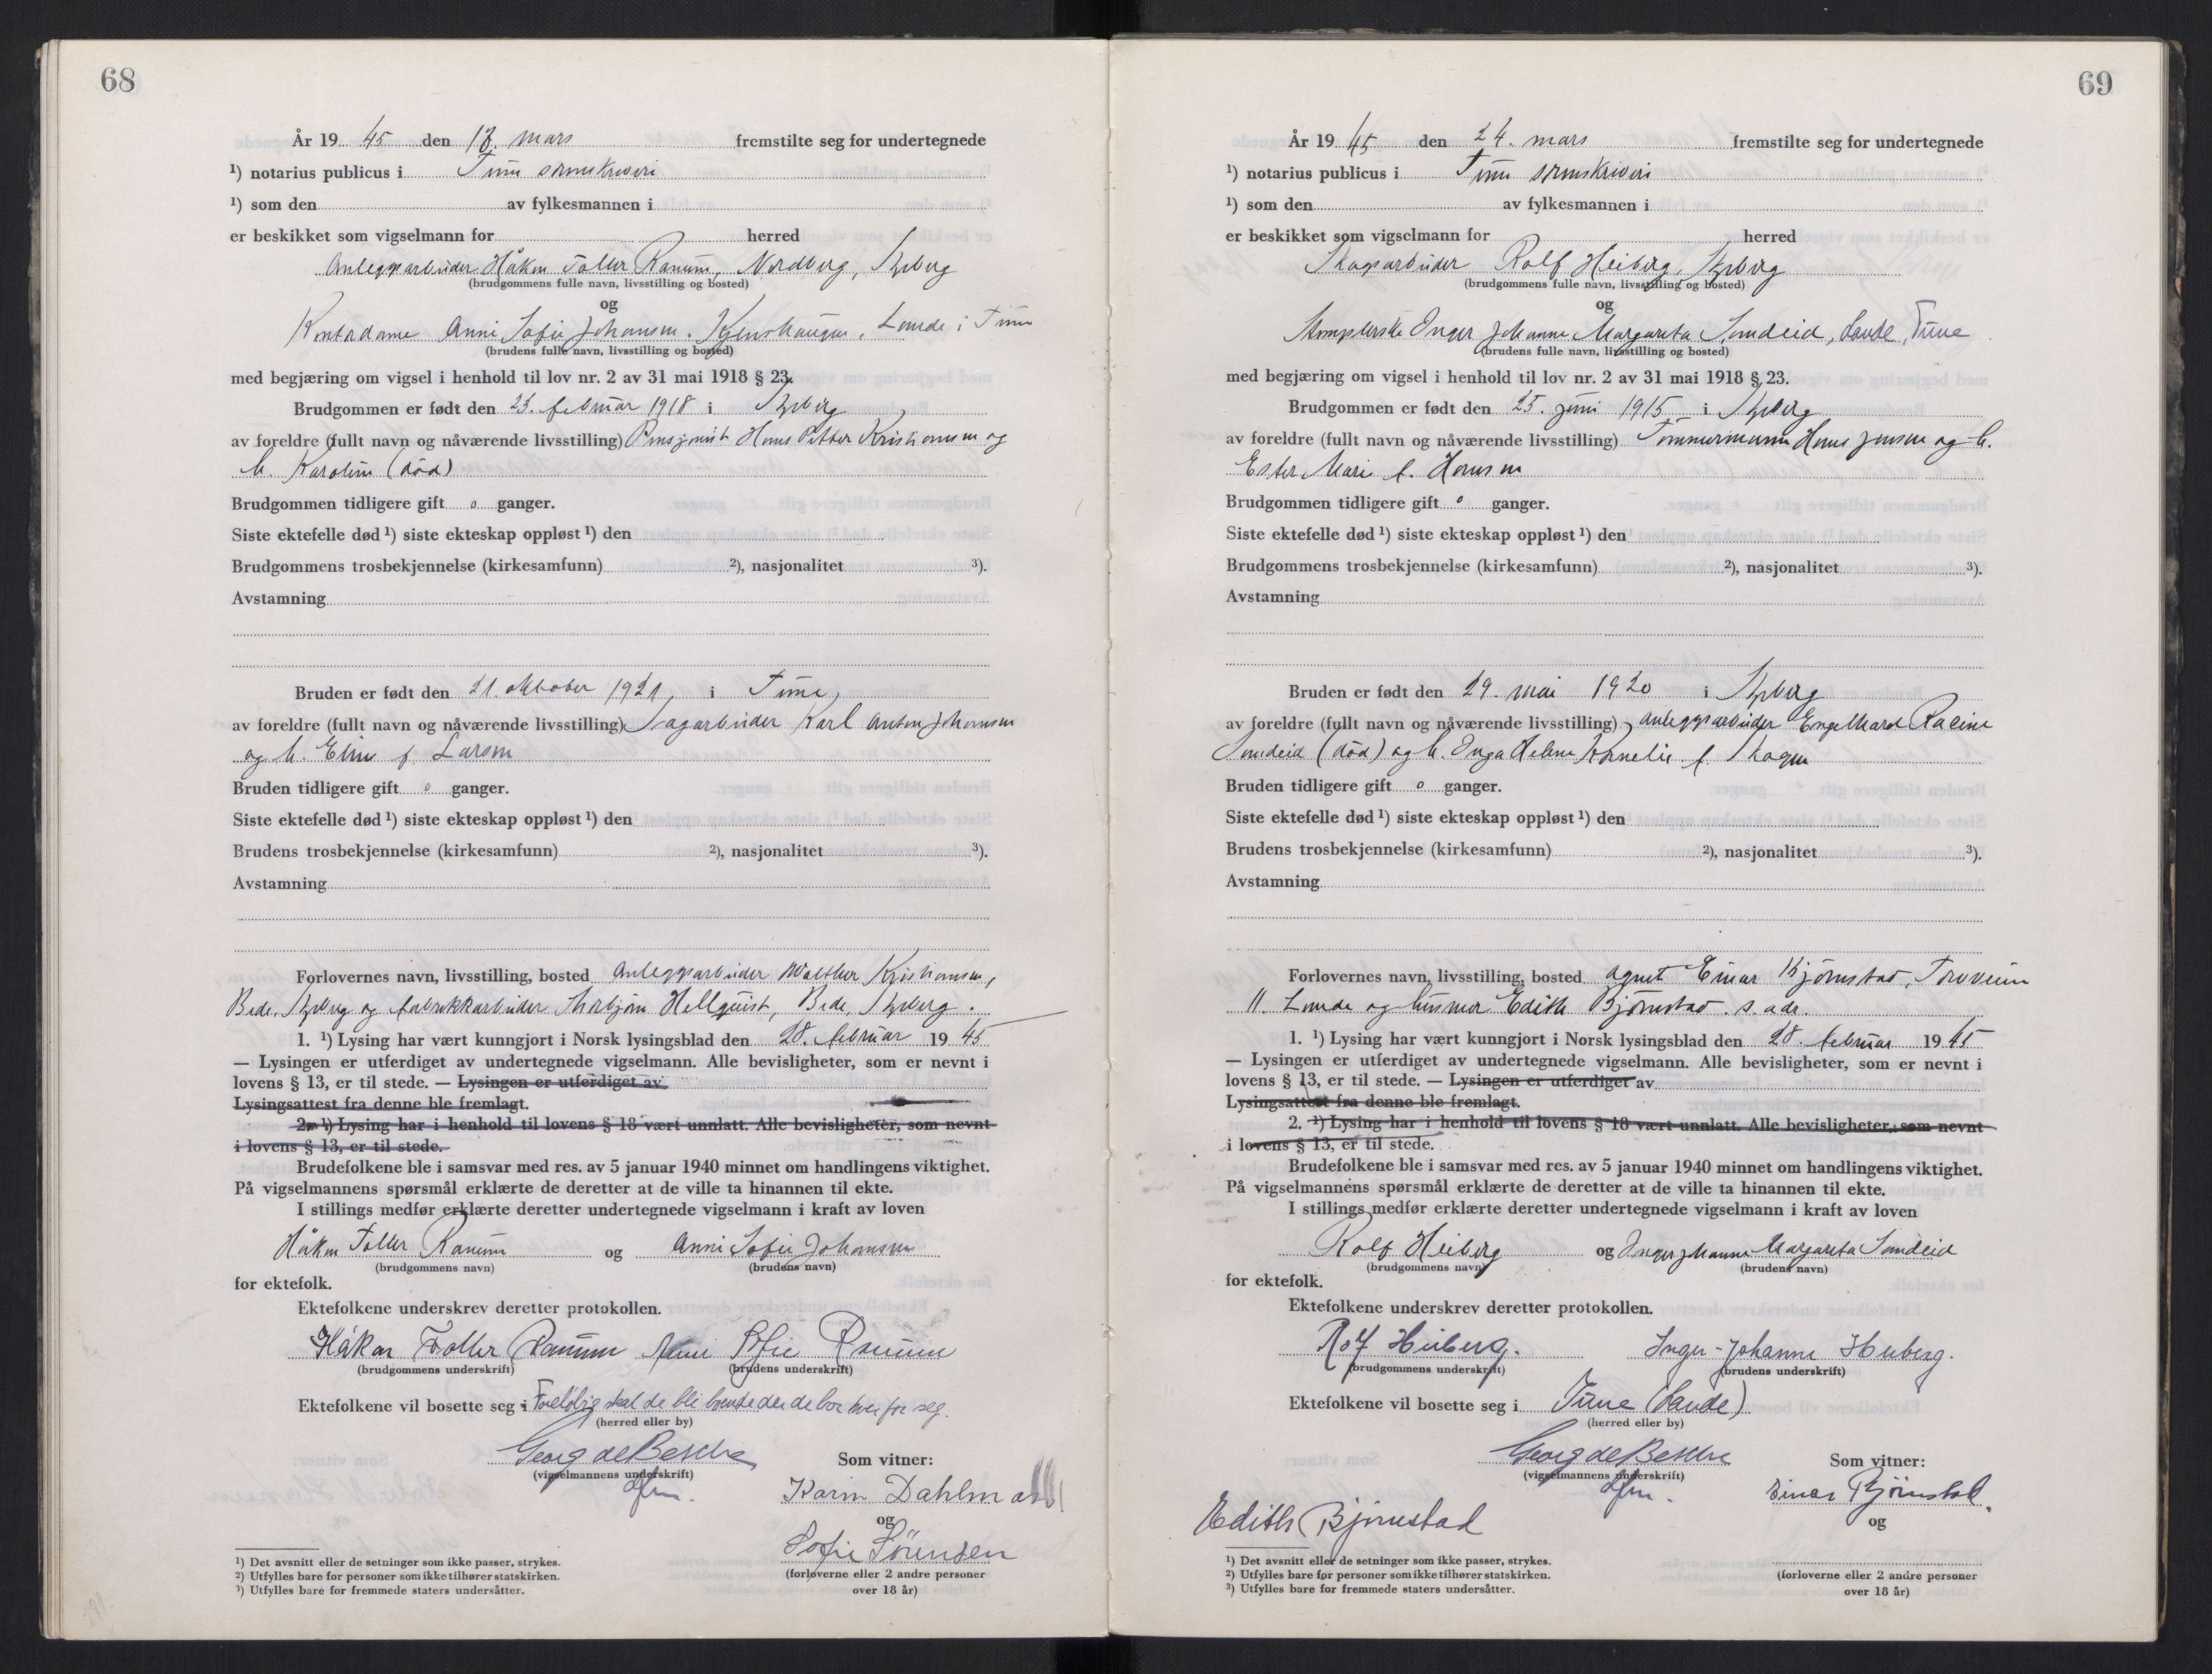 68
År 19 45 den 17. mars fremstilte seg for undertegnede
¹) notarius publicus i Tune sorenskriveri
¹) som den av fylkesmannen i
er beskikket som vigselmann for herred
Anleggsarbeider Håkon Toller Ranum, Nordberg, Skjeberg
(brudgommens fulle navn, livsstilling og bosted)
og
Kontordame Anni Sofie Johansen, Lande i Tune
(brudens fulle navn, livsstilling og bosted)
med begjæring om vigsel i henhold til lov nr. 2 av 31 mai 1918 § 23.
Brudgommen er født den 23. februar 1918 i Skjeberg
av foreldre (fullt navn og nåværende livsstilling) Pensjonist Hans Petter Kristiansen og
h. Karoline (død)
Brudgommen tidligere gift 0 ganger.
Siste ektefelle død ¹) siste ekteskap oppløst ¹) den
Brudgommens trosbekjennelse (kirkesamfunn) ²), nasjonalitet ³).
Avstamning
Bruden er født den 21. oktober 1921, i Tune,
av foreldre (fullt navn og nåværende livsstilling) Sagarbeider Karl Anton Johansen
og h. Eline f. Larsen
Bruden tidligere gift 0 ganger.
Siste ektefelle død ¹) siste ekteskap oppløst ¹) den
Brudens trosbekjennelse (kirkesamfunn) ²), nasjonalitet ³).
Avstamning
Forlovernes navn, livsstilling, bosted Anleggsarbeider Walther Kristiansen,
Bede, Skjeberg og fabrikkarbeider Thorbjørn Hellquist, Bede, Skjeberg.
1. ¹) Lysing har vært kunngjort i Norsk lysingsblad den 28. februar 19 45
— Lysingen er utferdiget av undertegnede vigselmann. Alle bevisligheter, som er nevnt i
lovens § 13, er til stede. — Lysingen er utferdiget av
Lysingsattest fra denne ble fremlagt.
2. ¹) Lysing har i henhold til lovens § 18 vært unnlatt. Alle bevisligheter, som nevnt
i lovens § 13, er til stede.
Brudefolkene ble i samsvar med res. av 5 januar 1940 minnet om handlingens viktighet.
På vigselmannens spørsmål erklærte de deretter at de ville ta hinannen til ekte.
I stillings medfør erklærte deretter undertegnede vigselmann i kraft av loven
Håkon Toller Ranum og Anni Sofie Johansen
(brudgommens navn) (brudens navn)
for ektefolk.
Ektefolkene underskrev deretter protokollen.
Håkon Toller Ranum Anni Sofie Ranum
(brudgommens underskrift) (brudens underskrift)
Ektefolkene vil bosette seg i Foreløbig skal de bli boende der de bor hver for seg.
(herred eller by)
Georg de Besche
(vigselmannens underskrift)
Som vitner:
Karin Dahlm
og
Sofie Sörensen
(forloverne eller 2 andre personer
over 18 år)
¹) Det avsnitt eller de setninger som ikke passer, strykes.
²) Utfylles bare for personer som ikke tilhører statskirken.
³) Utfylles bare for fremmede staters undersåtter.
69
År 19 45 den 24. mars fremstilte seg for undertegnede
¹) notarius publicus i Tune sorenskriveri
¹) som den av fylkesmannen i
er beskikket som vigselmann for herred
Skogsarbeider Rolf Heiberg, Skjeberg
(brudgommens fulle navn, livsstilling og bosted)
og
Stopperske Inger Johanne Margareta Sandeid, Lande, Tune
(brudens fulle navn, livsstilling og bosted)
med begjæring om vigsel i henhold til lov nr. 2 av 31 mai 1918 § 23.
Brudgommen er født den 25. juni 1915 i Skjeberg
av foreldre (fullt navn og nåværende livsstilling) Tømmermann Hans Jensen og h.
Ester Marie f. Hansen
Brudgommen tidligere gift 0 ganger.
Siste ektefelle død ¹) siste ekteskap oppløst ¹) den
Brudgommens trosbekjennelse (kirkesamfunn) ²), nasjonalitet ³).
Avstamning
Bruden er født den 29. mai 1920 i Skjeberg
av foreldre (fullt navn og nåværende livsstilling) Anleggsarbeider Engelhard Racine
Sandeid (død) og h. Inga Helene Kornelie f. Skogen
Bruden tidligere gift 0 ganger.
Siste ektefelle død ¹) siste ekteskap oppløst ¹) den
Brudens trosbekjennelse (kirkesamfunn) ²), nasjonalitet ³).
Avstamning
Forlovernes navn, livsstilling, bosted agent Einar Bjørnstad, Toroveien
11. Lande og husmor Edith Bjørnstad. s. adr.
1. ¹) Lysing har vært kunngjort i Norsk lysingsblad den 28. februar 19 45
— Lysingen er utferdiget av undertegnede vigselmann. Alle bevisligheter, som er nevnt i
lovens § 13, er til stede. — Lysingen er utferdiget av
Lysingsattest fra denne ble fremlagt.
2. ¹) Lysing har i henhold til lovens § 18 vært unnlatt. Alle bevisligheter, som nevnt
i lovens § 13, er til stede.
Brudefolkene ble i samsvar med res. av 5 januar 1940 minnet om handlingens viktighet.
På vigselmannens spørsmål erklærte de deretter at de ville ta hinannen til ekte.
I stillings medfør erklærte deretter undertegnede vigselmann i kraft av loven
Rolf Heiberg og Inger Johanne Margareta Sandeid
(brudgommens navn) (brudens navn)
for ektefolk.
Ektefolkene underskrev deretter protokollen.
Rolf Heiberg. Inger-Johanne Heiberg.
(brudgommens underskrift) (brudens underskrift)
Ektefolkene vil bosette seg i Tune (Lande)
(herred eller by)
Georg de Besche
(vigselmannens underskrift)
Som vitner:
Einar Bjørnstad.
og
Edith Bjørnstad
(forloverne eller 2 andre personer
over 18 år)
¹) Det avsnitt eller de setninger som ikke passer, strykes.
²) Utfylles bare for personer som ikke tilhører statskirken.
³) Utfylles bare for fremmede staters undersåtter.